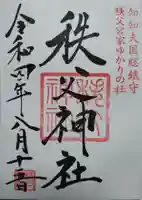 知知夫国総鎮守
秩父宮家ゆかりの社
秩父神社
令和四年八月